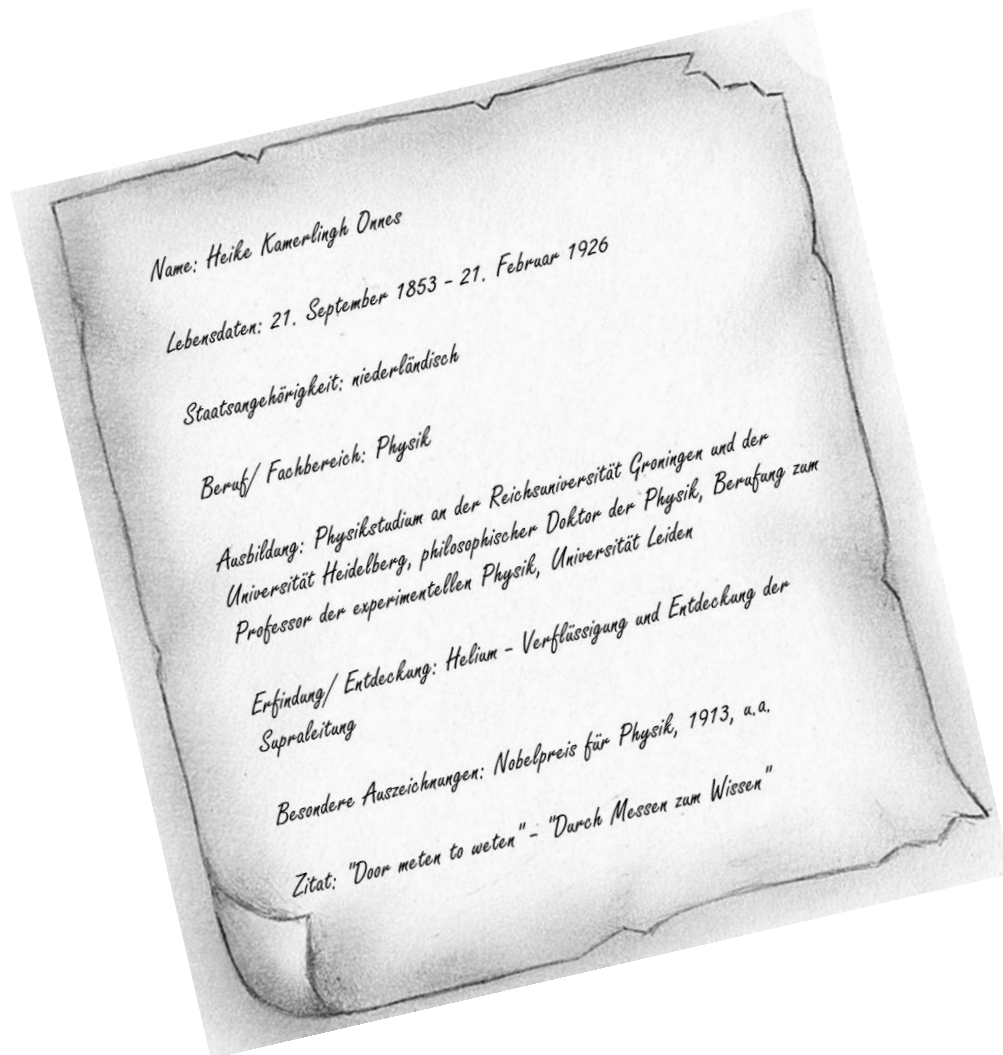 Name: Heike Kamerlingh Onnes
Lebensdaten: 21. September 1853 - 21. Februar 1926
Staatsangehörigkeit: niederländisch
Beruf/ Fachbereich: Physik
Ausbildung: Physikstudium an der Reichsuniversität Groningen und der
Universität Heidelberg, philosophischer Doktor der Physik, Berufung zum
Professor der experimentellen Physik, Universität Leiden
Erfindung/ Entdeckung: Helium - Verflüssigung und Entdeckung der
Supraleitung
Besondere Auszeichnungen: Nobelpreis für Physik, 1913, u.a.
Zitat: "Door meten to weten" - "Durch Messen zum Wissen"